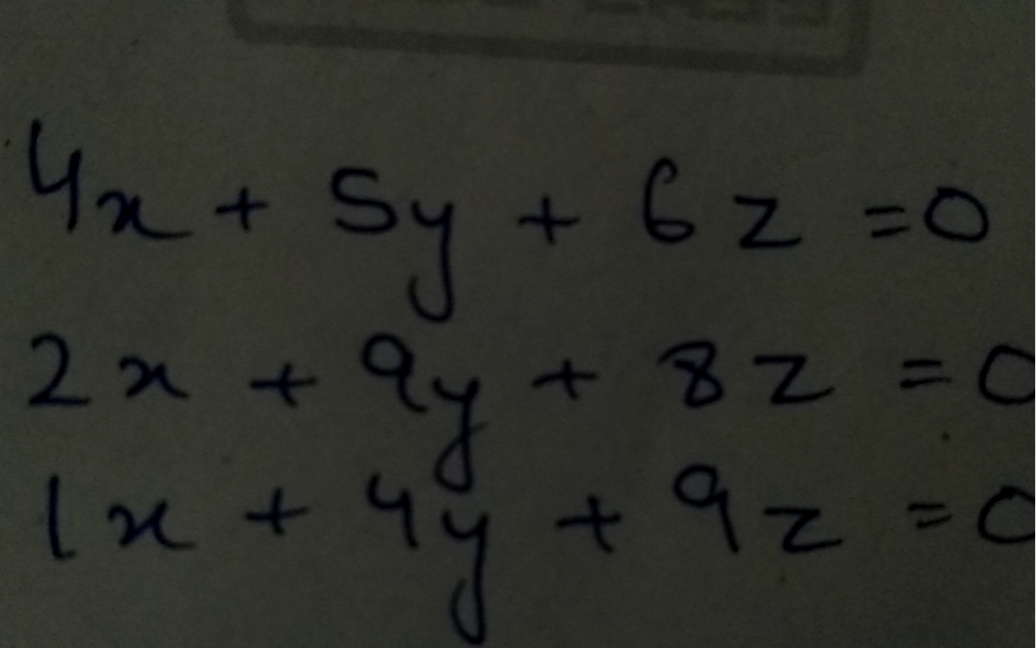 4x + 5y + 6z = 0
2x + 9y + 8z = 0
1x + 4y + 9z = 0